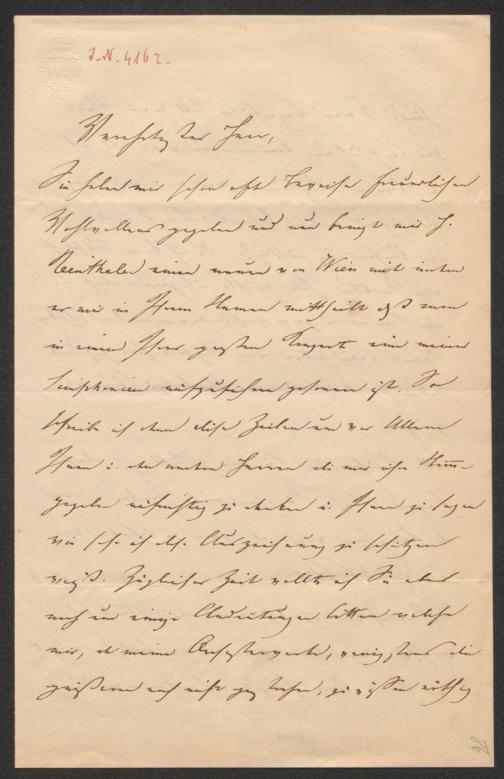 J.N. 4162.
Verehrtester Herr,
Sie haben mir schon oft Beweise freundlichen
Wohlwollens gegeben und nun bringt mir H.
einen neuen von Wien mit indem
er mir in Ihrem Namen mittheilt daß man
in einem Ihrer großen Konzerte eine meiner
Simphonien aufzuführen gesonnen ist. So
schreibe ich denn diese Zeilen um vor Allem
Ihnen u. den andern Herren die mir ihre Stimme
gegeben aufrichtig zu danken u. Ihnen zu sagen
wie sehr ich diese Auszeichnung zu schätzen
weiß. Zu gleicher Zeit wollte ich Sie aber
noch um einige Andeutungen bitten welche
mir, da meine Orchesterwerke, wenigstens die
größeren noch nicht gestochen, zu wissen nöthig
98